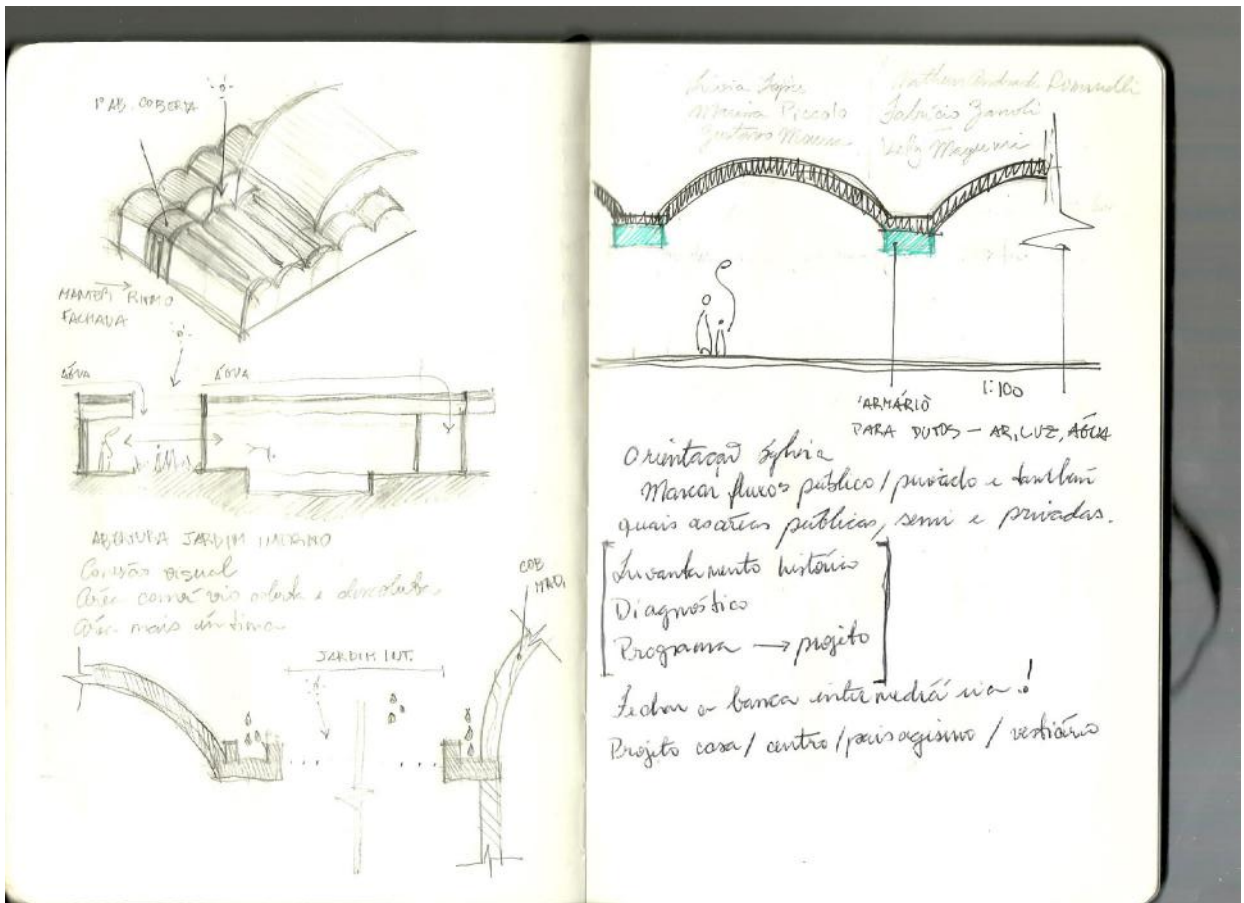 1º AB. COBERTA
MANTER RITMO
FACHADA
ÁGUA
ÁGUA
ABERTURA JARDIM INTERNO
Conexão visual
Área convívio coberta e descoberta
Área mais íntima
COB
JARDIM INT.
Marina Piccolo
Fabrício Zanoli
Gustavo
1:100
'ARMÁRIO
PARA DUTOS – AR, LUZ, ÁGUA
Orientação Sylvia
Marcar fluxos público/privado e também
quais as áreas públicas, semi e privadas.
Levantamento histórico
Diagnóstico
Programa → projeto
Fechar a banca intermediária!
Projeto casa/centro/paisagismo/vestiário